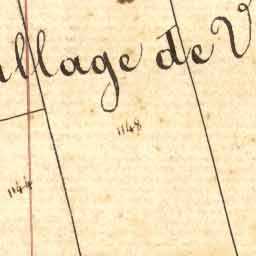 illage de V
1148
1144